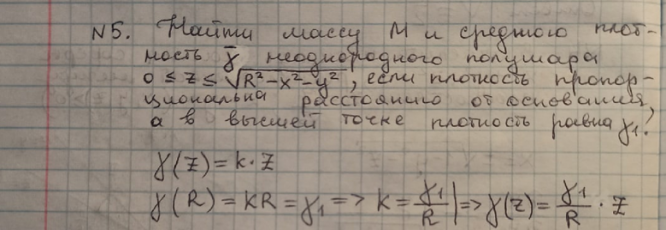 №5. Найти массу М и среднюю плот-
ность γ̅ неоднородного полушара
0 ≤ z ≤ √(R²-x²-y²), если плотность пропор-
циональна расстоянию от основания,
а в высшей точке плотность равна γ₁?
γ(z) = k·z
γ(R) = kR = γ₁ => k = γ₁/R | => γ(z) = γ₁/R · z